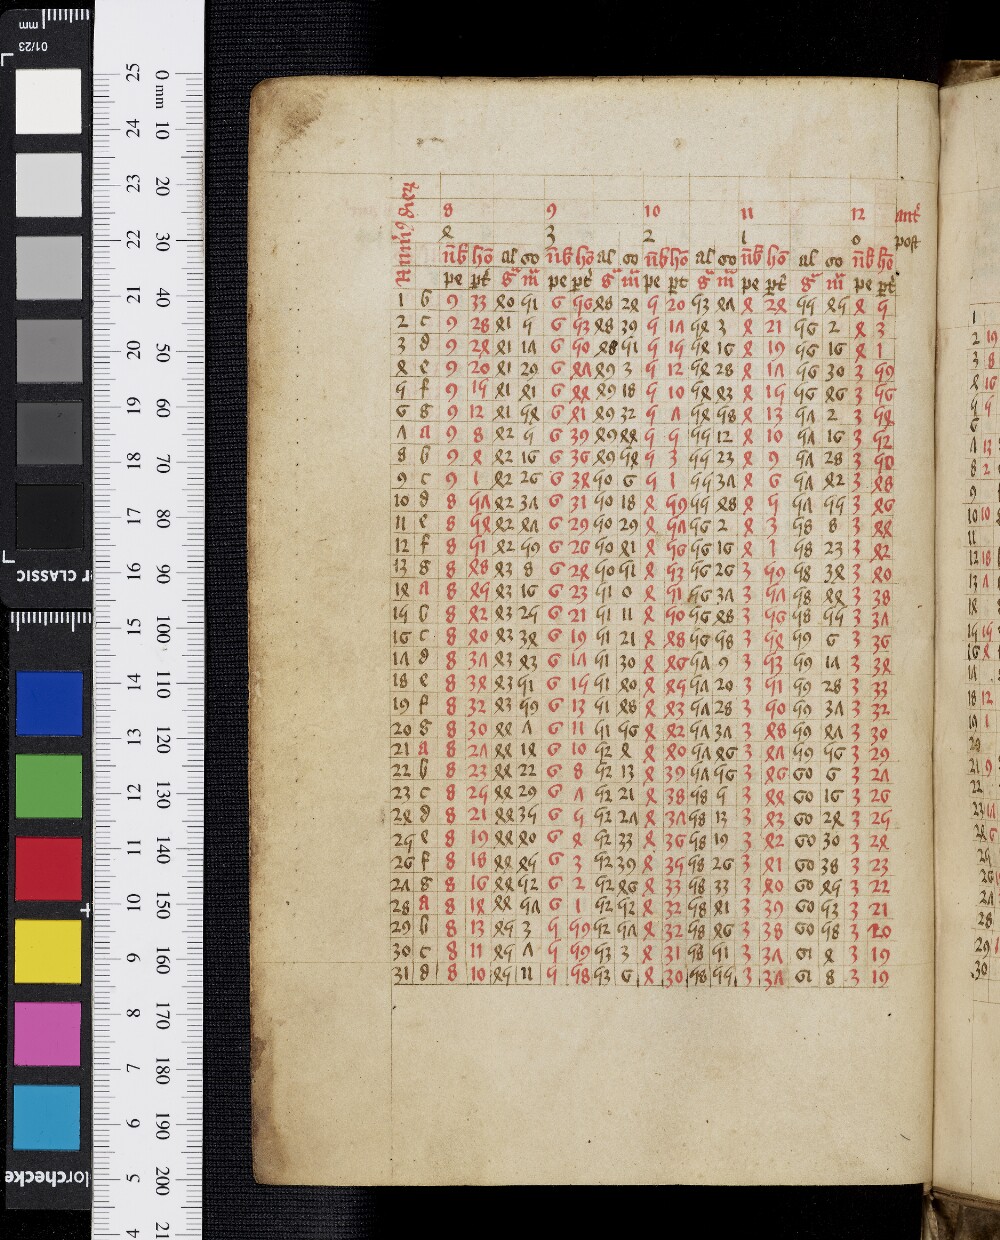 8 9 10 11 12 ant
4 3 2 1 0 post
Numus dierum
nb ho al go nb ho al go nb ho al go nb ho al go nb ho
pe pt g m pe pt g m pe pt g m pe pt g m pe pt
1 b 9 33 40 51 6 56 48 24 5 20 53 47 4 24 55 45 4 5
2 c 9 28 41 5 6 53 48 39 5 17 54 3 4 21 56 2 4 3
3 d 9 24 41 17 6 50 48 51 5 15 54 16 4 19 56 16 4 1
4 e 9 20 41 29 6 47 49 3 5 12 54 28 4 17 56 30 3 59
5 f 9 15 41 41 6 44 49 18 5 10 54 43 4 15 56 46 3 56
6 g 9 12 41 54 6 41 49 32 5 7 54 58 4 13 57 2 3 54
7 a 9 8 42 5 6 39 49 44 5 5 55 12 4 10 57 16 3 52
8 b 9 4 42 16 6 36 49 54 5 3 55 23 4 9 57 28 3 50
9 c 9 1 42 26 6 34 50 6 5 1 55 37 4 6 57 42 3 48
10 d 8 57 42 37 6 31 50 18 4 59 55 48 4 5 57 55 3 46
11 e 8 54 42 47 6 29 50 29 4 57 56 2 4 3 58 8 3 44
12 f 8 51 42 59 6 26 50 41 4 56 56 16 4 1 58 23 3 42
13 g 8 48 43 8 6 24 50 51 4 53 56 26 3 59 58 34 3 40
14 a 8 45 43 16 6 23 51 0 4 51 56 37 3 57 58 44 3 38
15 b 8 42 43 25 6 21 51 11 4 50 56 48 3 56 58 55 3 37
16 c 8 40 43 34 6 19 51 21 4 48 56 58 3 54 59 6 3 36
17 d 8 37 43 43 6 17 51 30 4 46 57 9 3 53 59 17 3 34
18 e 8 34 43 51 6 15 51 40 4 45 57 20 3 51 59 28 3 33
19 f 8 32 43 59 6 13 51 48 4 43 57 28 3 50 59 37 3 32
20 g 8 30 44 7 6 11 51 56 4 42 57 37 3 48 59 47 3 30
21 a 8 27 44 14 6 10 52 4 4 40 57 46 3 47 59 56 3 29
22 b 8 23 44 22 6 8 52 13 4 39 57 56 3 46 60 6 3 27
23 c 8 25 44 29 6 7 52 21 4 38 58 5 3 44 60 16 3 26
24 d 8 21 44 35 6 5 52 27 4 37 58 13 3 43 60 24 3 25
25 e 8 19 44 40 6 4 52 33 4 36 58 19 3 42 60 30 3 24
26 f 8 18 44 45 6 3 52 39 4 35 58 26 3 41 60 38 3 23
27 g 8 16 44 52 6 2 52 46 4 33 58 33 3 40 60 45 3 22
28 a 8 14 44 57 6 1 52 52 4 32 58 41 3 39 60 53 3 21
29 b 8 13 45 3 5 59 52 57 4 32 58 46 3 38 60 58 3 20
30 c 8 11 45 7 5 59 53 3 4 31 58 51 3 37 61 4 3 19
31 d 8 10 45 11 5 58 53 6 4 30 58 55 3 37 61 8 3 19
mm
01/23
CLASSIC
lorchecke
0 mm 10 20 30 40 50 60 70 80 90 100 110 120 130 140 150 160 170 180 190 200 21
25 24 23 22 21 20 19 18 17 16 15 14 13 12 11 10 9 8 7 6 5 4